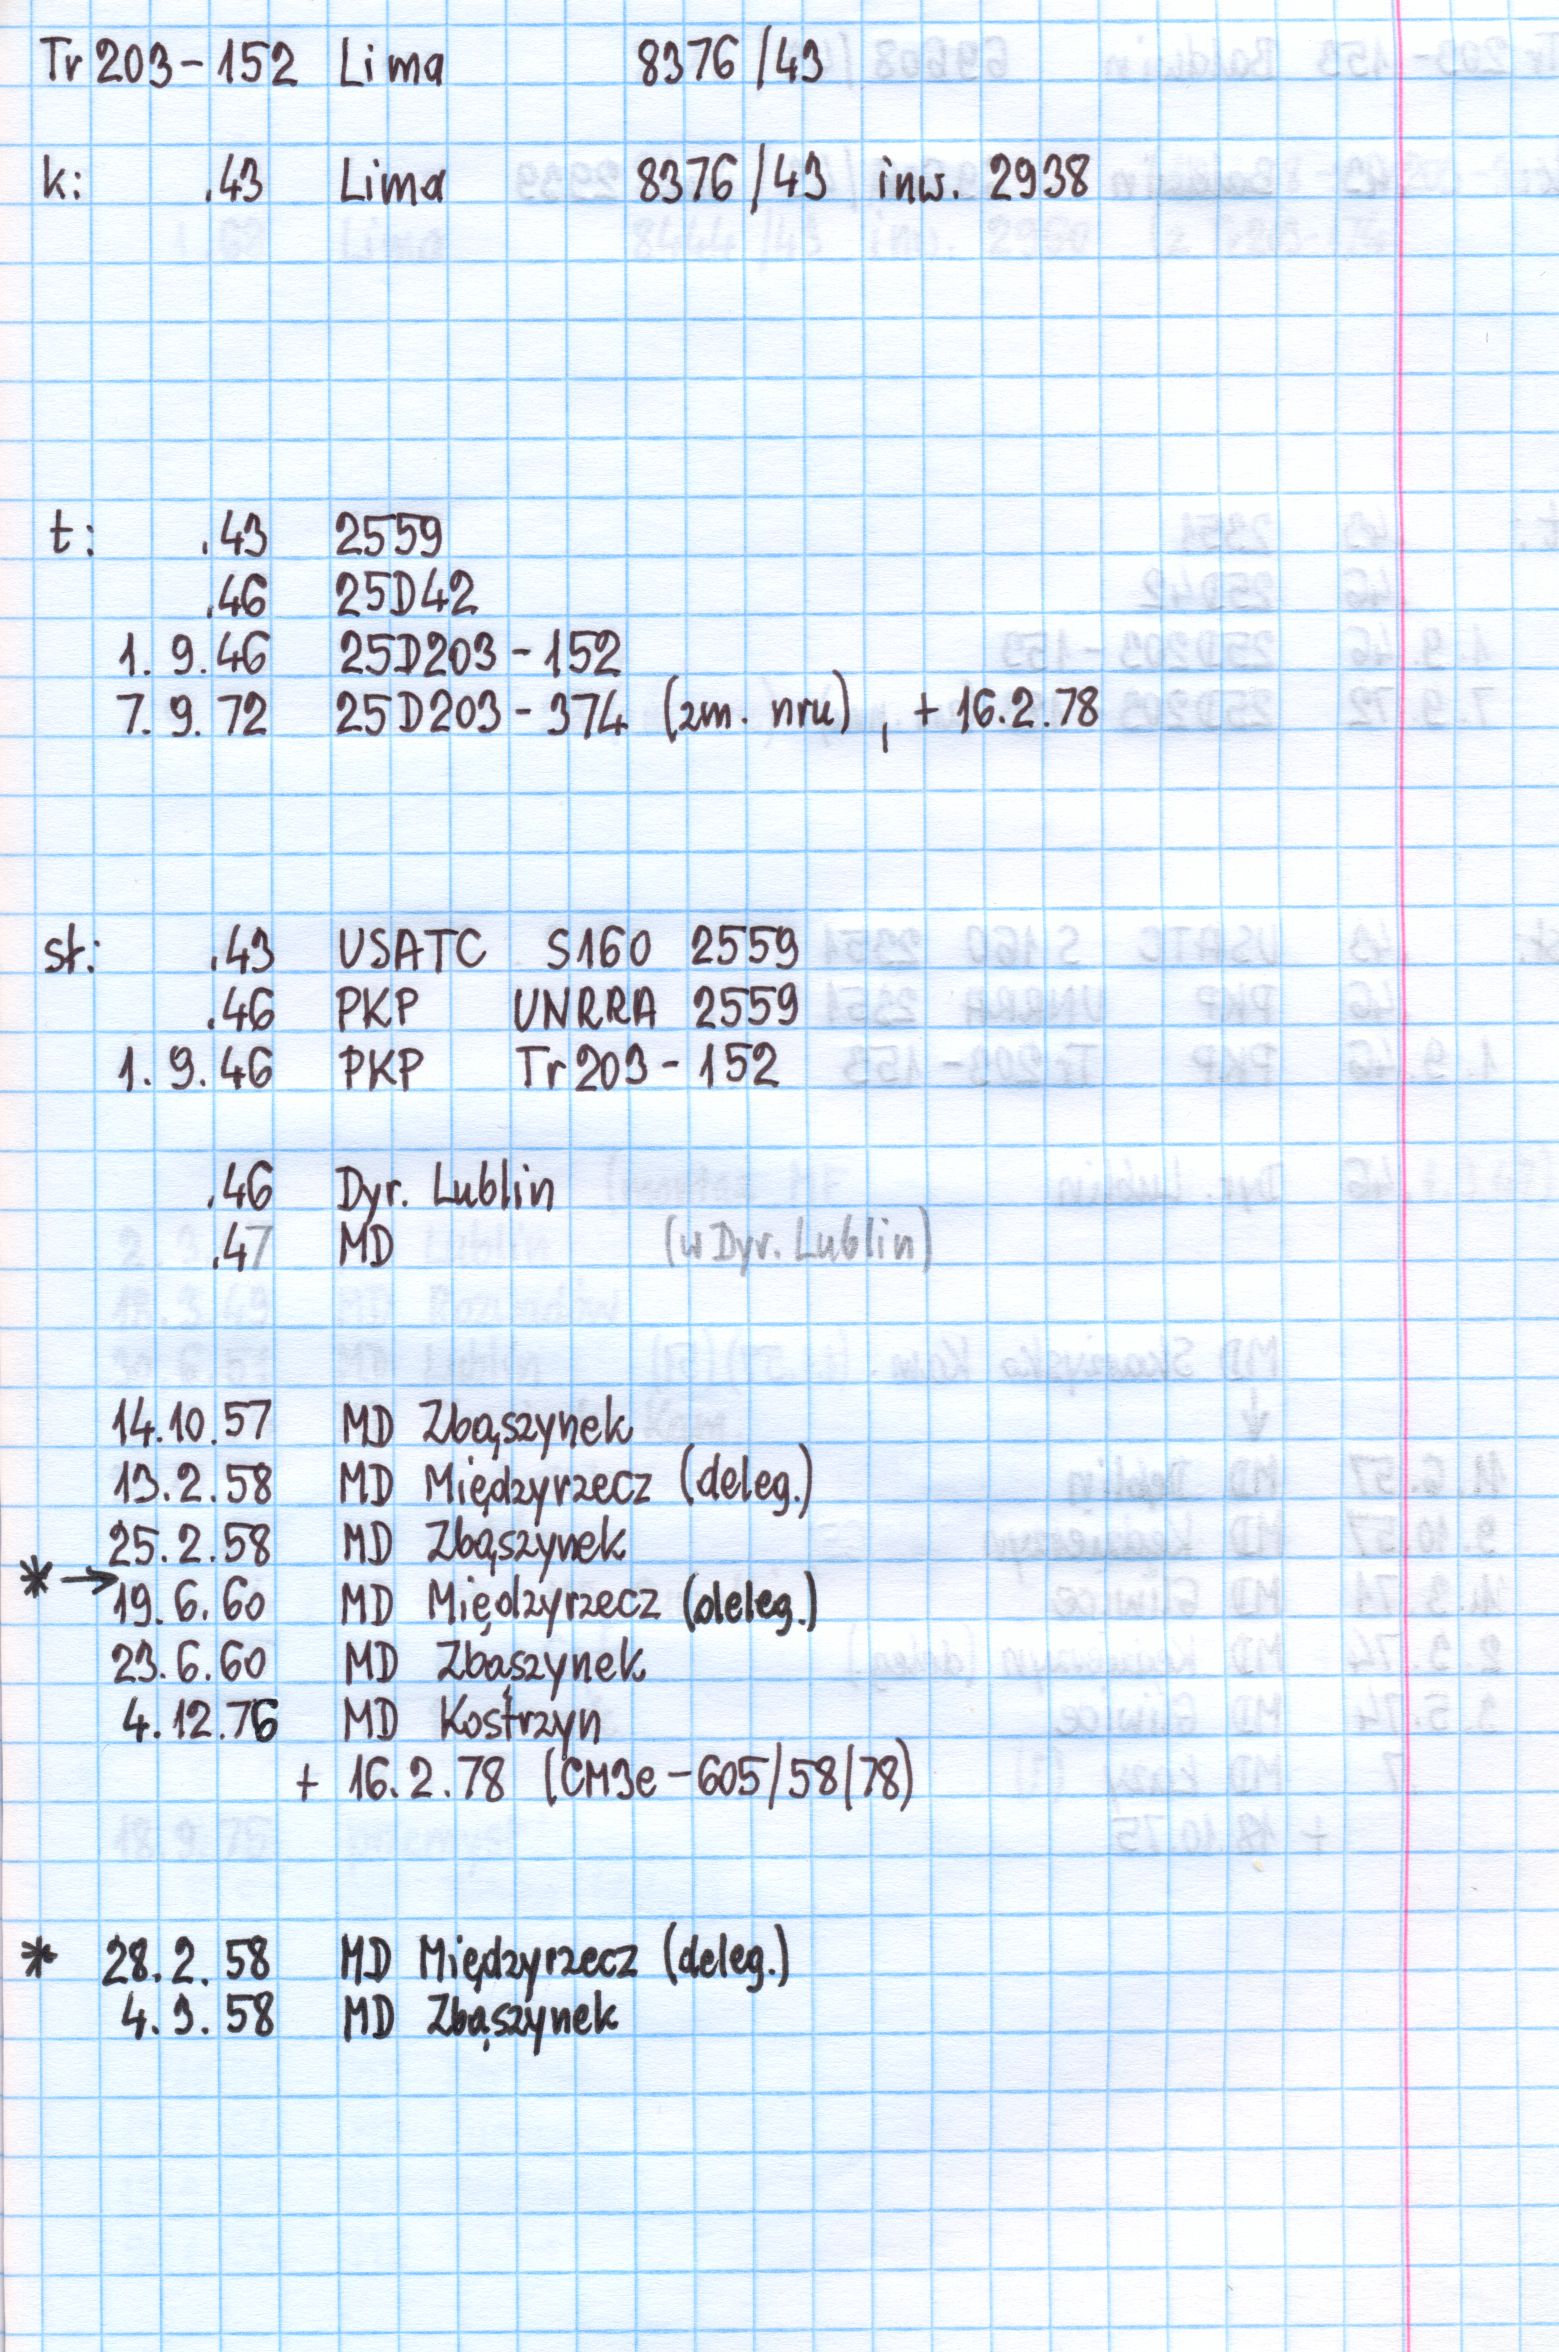 Tr 203-152 Lima 8376/43
k: .43 Lima 8376/43 inw. 2938
t: .43 2559
.46 25D42
1. 9.46 25D203-152
7. 9. 72 25D203-374 (zm. nru), + 16.2.78
st: .43 USATC S160 2559
.46 PKP UNRRA 2559
1. 9.46 PKP Tr 203-152
.46 Dyr. Lublin
.47 MD (w Dyr. Lublin)
14.10.57 MD Zbąszynek
13.2.58 MD Międzyrzecz (deleg.)
25.2.58 MD Zbąszynek
* → 19.6.60 MD Międzyrzecz (deleg.)
23.6.60 MD Zbąszynek
4.12.76 MD Kostrzyn
+ 16.2.78 (CM3e-605/58/78)
* 28.2.58 MD Międzyrzecz (deleg.)
4.3.58 MD Zbąszynek